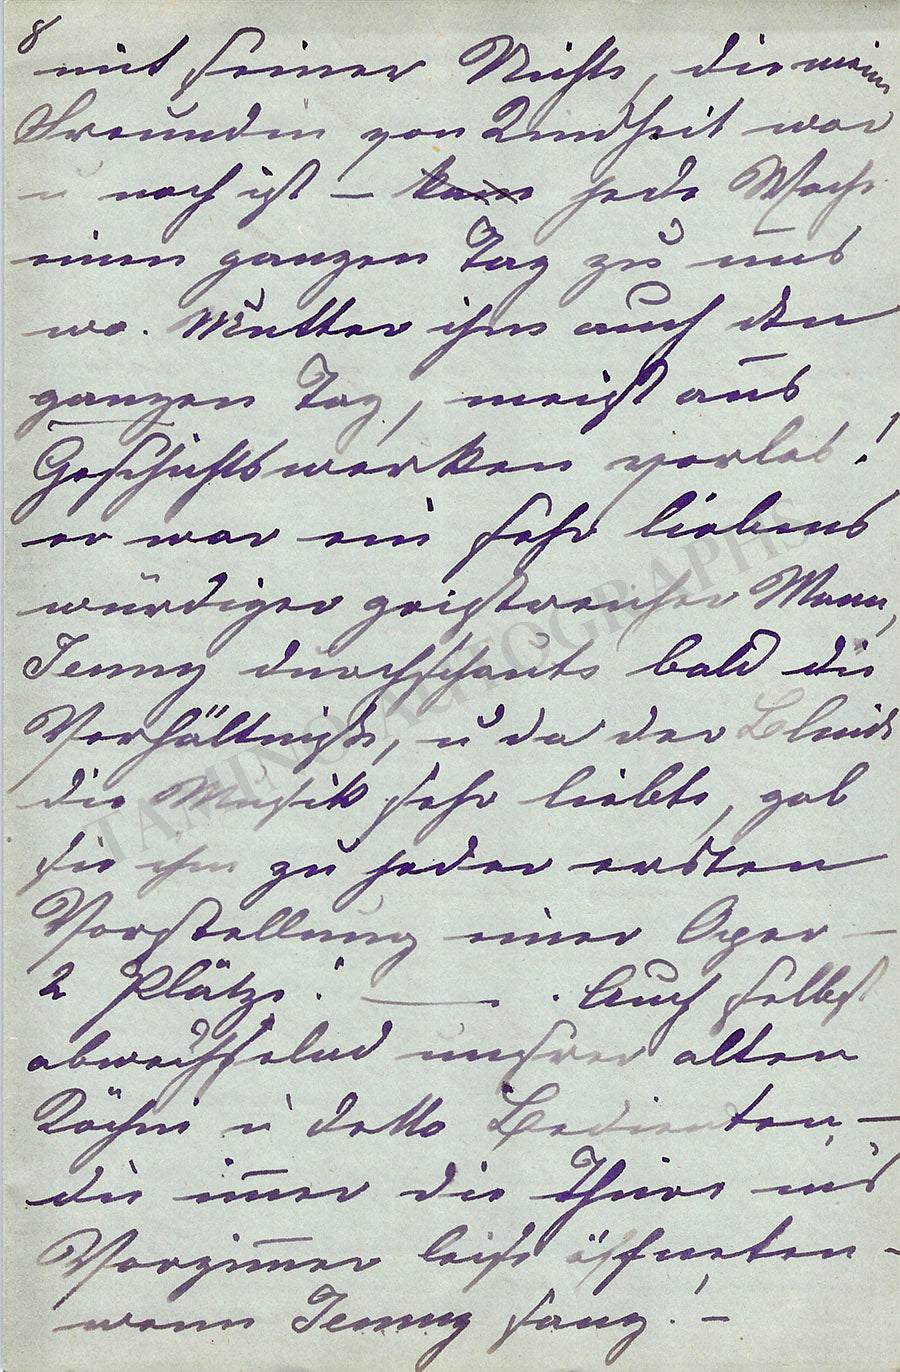 8
mit seiner Nichte, die meine
Freundin von Kindheit war
u noch ist – kam jede Woche
einen ganzen Tag zu uns
wo. Mutter ihm auch den
ganzen Tag, meist aus
Geschichtswerken vorlas!
er war ein sehr liebens
würdiger geistreicher Mann,
Jenny durchschaute bald die
Verhältnisse, u da der Blinde
die Musik sehr liebte, gab
sie ihm zu jeder ersten
Vorstellung einer Oper –
2 Plätze! — . Auch selbst
abwechselnd unsrer alten
Köchin u detto Bedienten –
die im̄er die Thüre in's
Vorzim̄er leise öffneten –
wenn Jenny sang! –
TAMINO AUTOGRAPHS